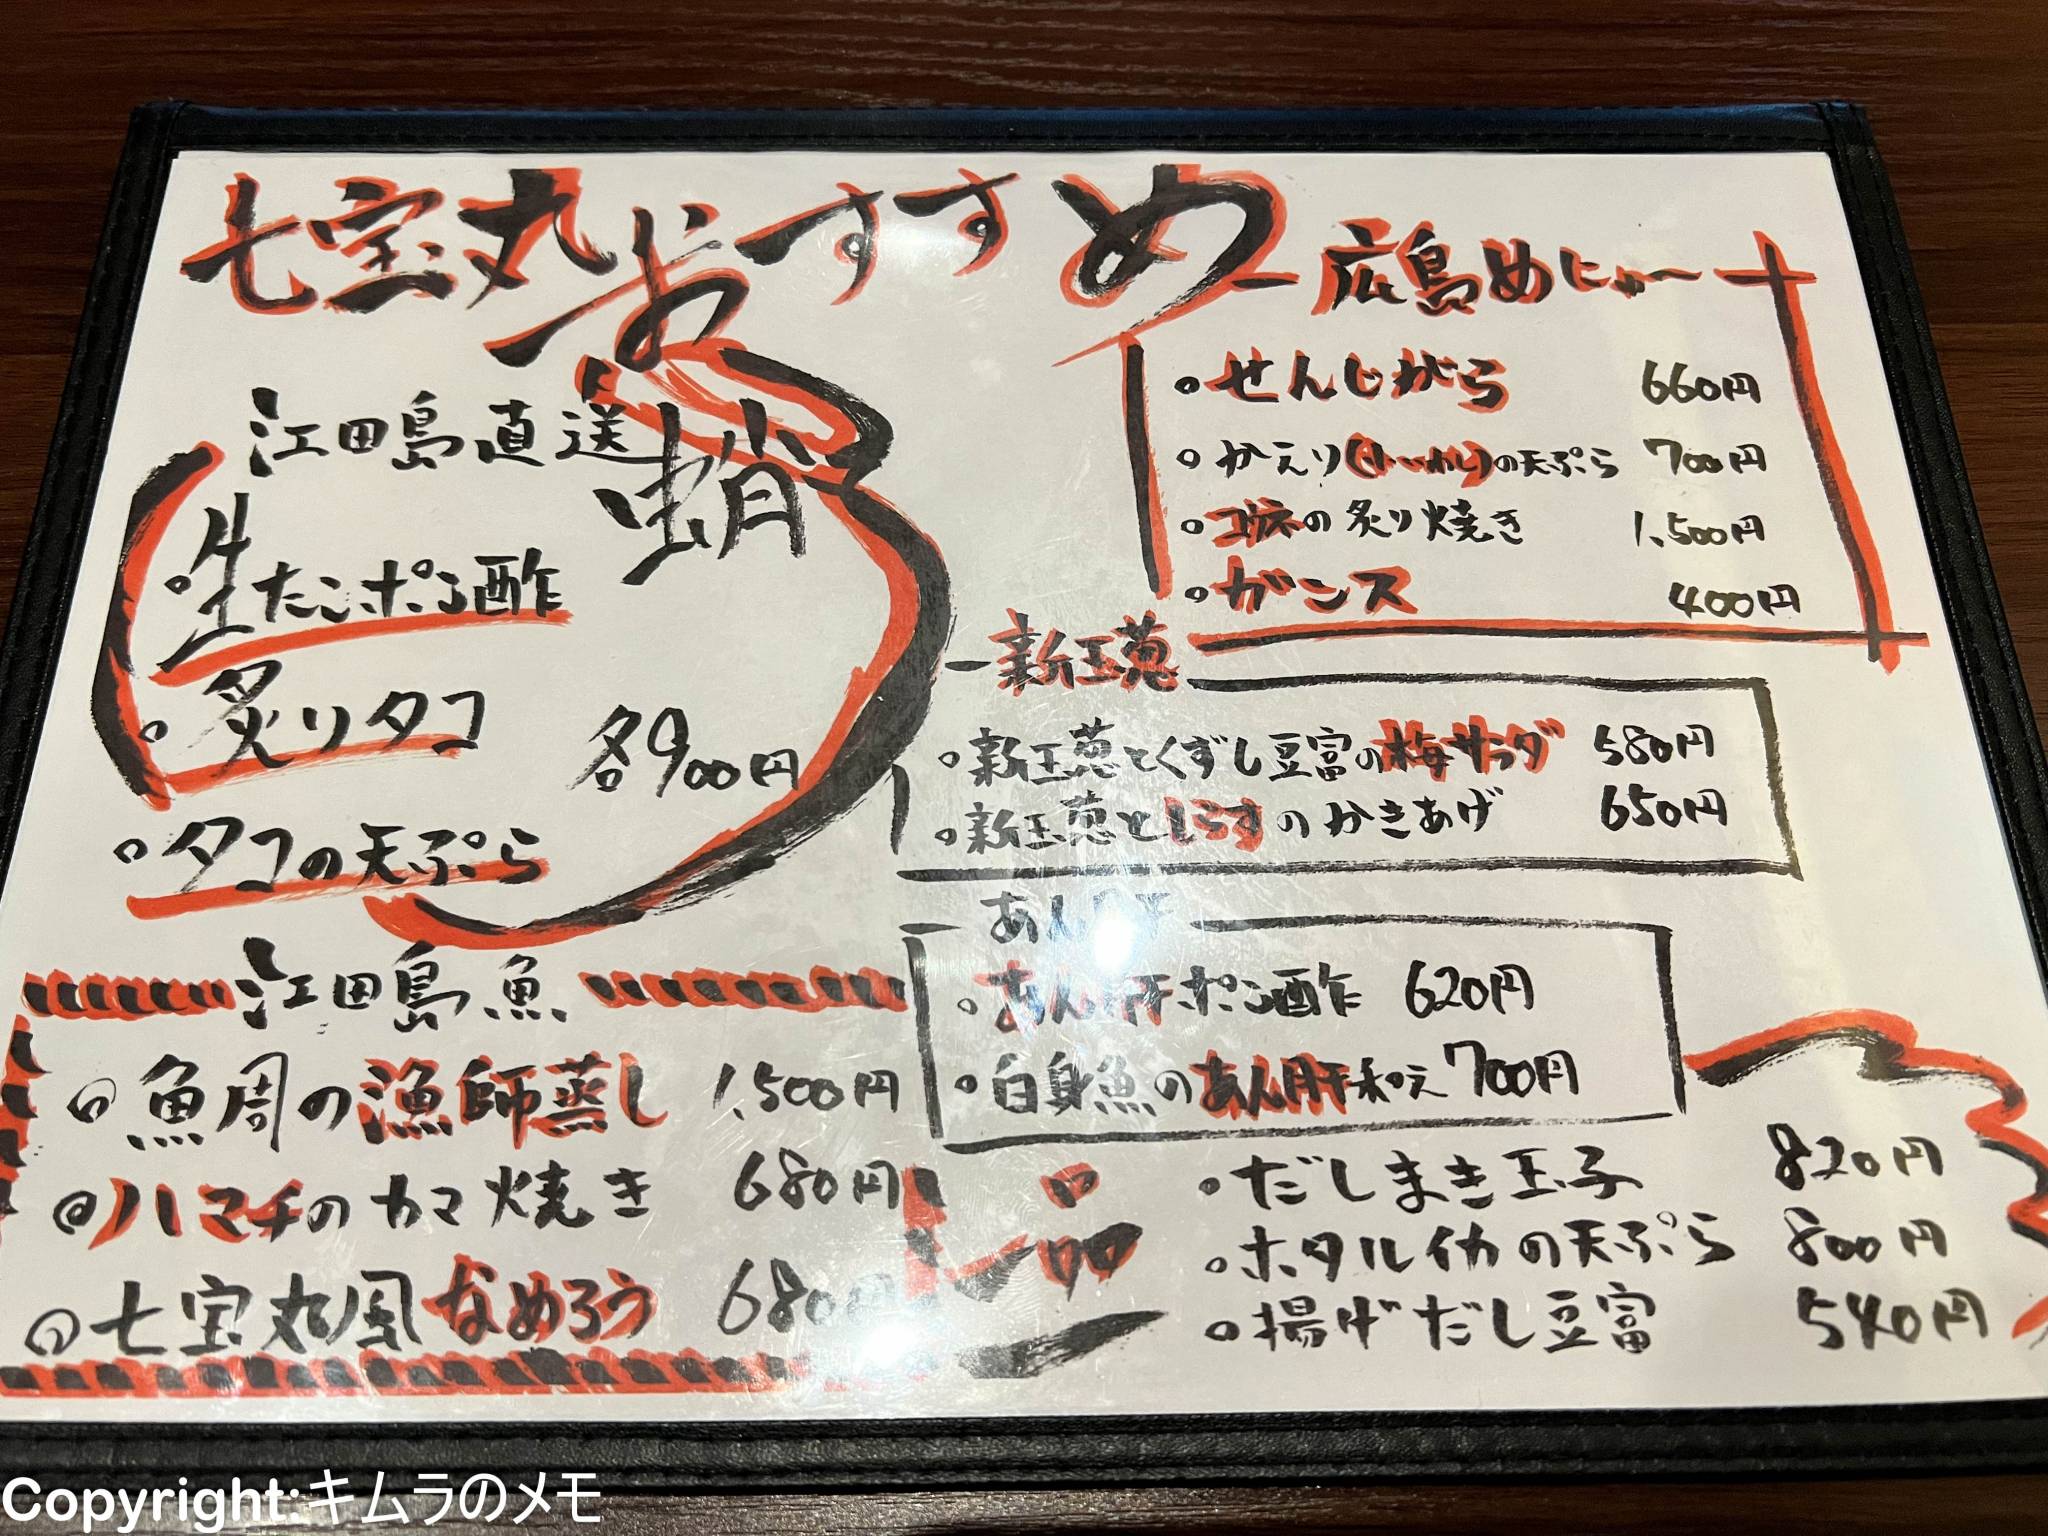 七宝丸おすすめ
江田島直送 蛸
・生たこポン酢
・炙りタコ 各900円
・タコの天ぷら
江田島魚
・魚周の漁師蒸し 1,500円
・ハマチのカマ焼き 680円
・七宝丸風なめろう 680円
広島めにゅー
・せんじがら 660円
・かえり(小いわし)の天ぷら 700円
・コウネの炙り焼き 1,500円
・ガンス 400円
新玉葱
・新玉葱とくずし豆富の梅サラダ 580円
・新玉葱としらすのかきあげ 650円
あん肝
・あん肝ポン酢 620円
・白身魚のあん肝和え 700円
一品
・だしまき玉子 820円
・ホタルイカの天ぷら 800円
・揚げだし豆富 540円
Copyright:キムラのメモ